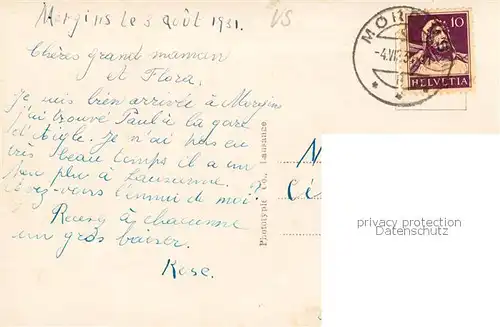 Morgins le 3 août 1931.
VS
Chères grand maman
et Flora.
Je suis bien arrivée à Morgins
j'ai trouvé Paul à la gare
d'Aigle. Je n'ai pas eu
très beau temps il a un
peu plu à Lausanne.
avez-vous l'ennui de moi?
à chacunne
un gros baiser.
Rose.
Phototypie Co., Lausanne
MOR
10
HELVETIA
privacy protection
Datenschutz